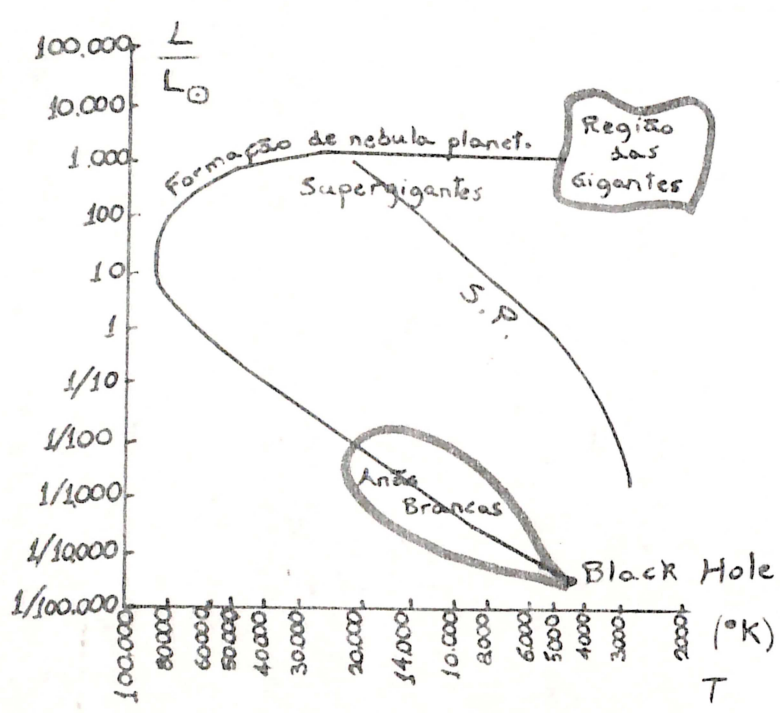 L
L☉
100.000
10.000
1.000
100
10
1
1/10
1/100
1/1.000
1/10.000
1/100.000
Formação de nebula planet.
Região
das
Gigantes
Supergigantes
S.P.
Anãs
Brancas
Black Hole
100.000
80000
60000
50.000
40.000
30.000
20.000
14.000
10.000
8.000
6.000
5000
4000
3000
2000
(°K)
T